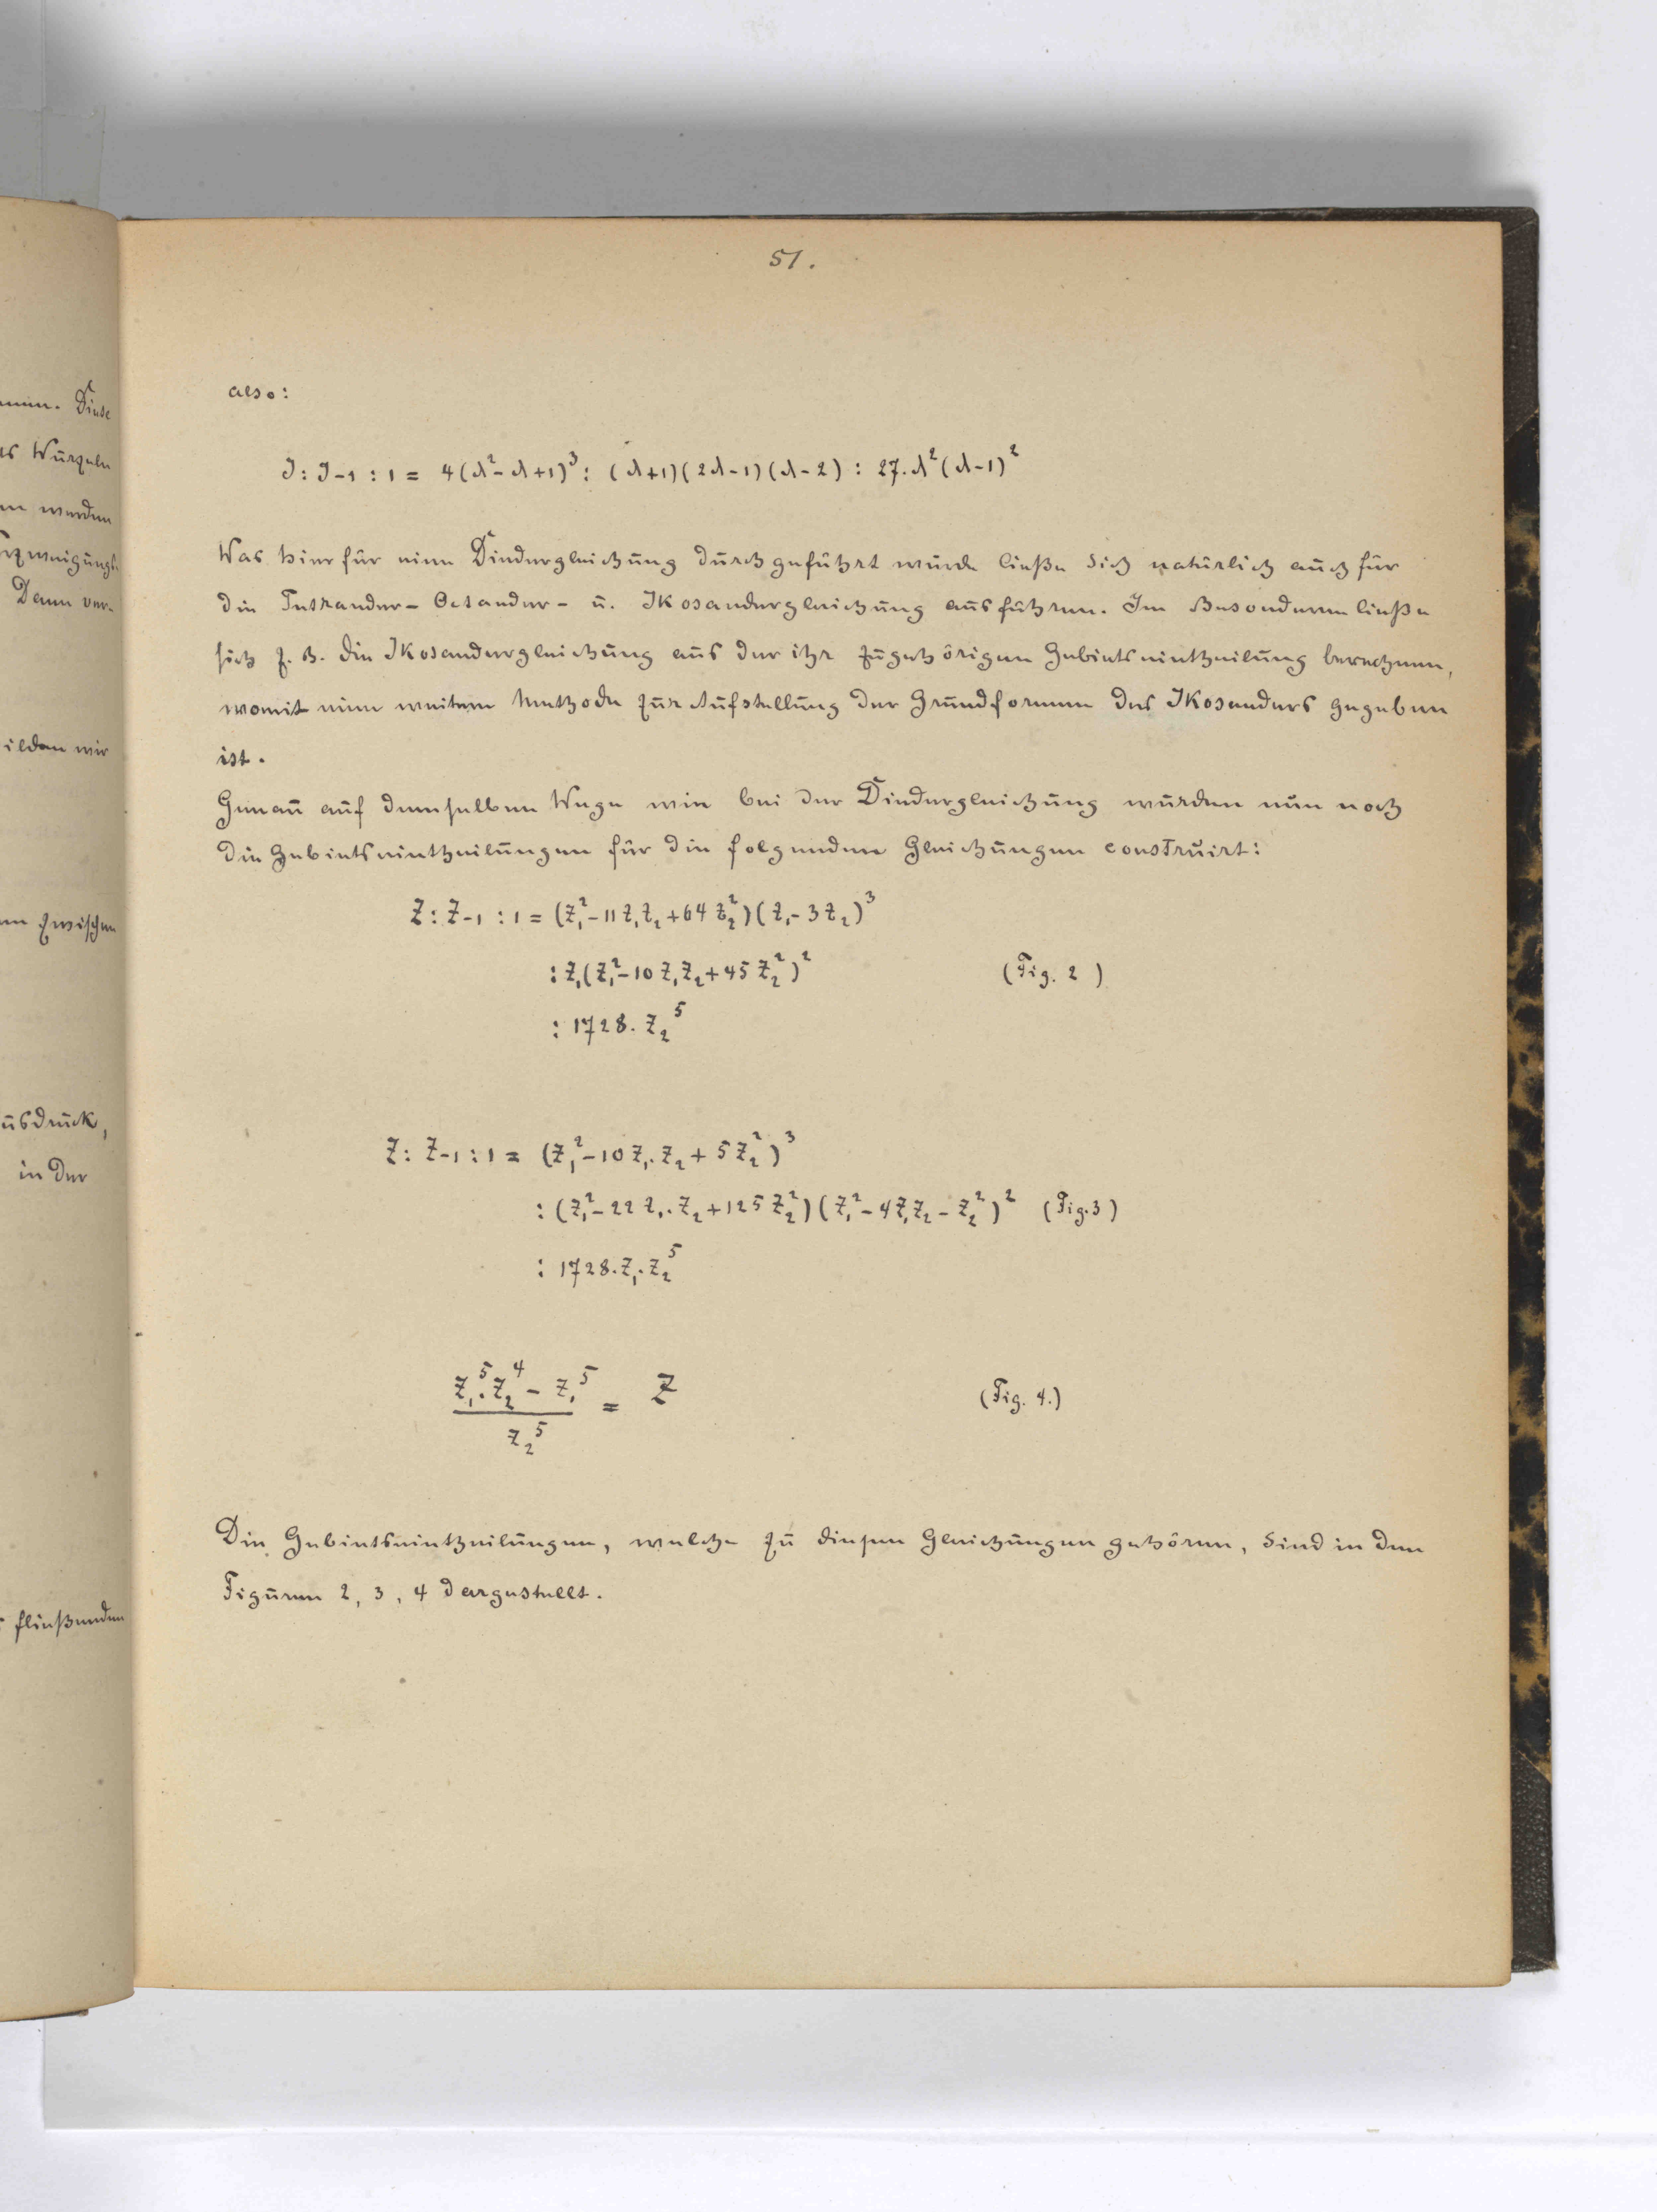 51.
also:
J : J-1 : 1 = 4(λ²-λ+1)³ : (λ+1)(2λ-1)(λ-2) : 27.λ²(λ-1)²
Was hier für eine Diedergleichung durchgeführt wurde ließe sich natürlich auch für
die Tetraeder- Octaeder- u. Ikosaedergleichung ausführen. Im Besonderen ließe
sich z. B. die Ikosaedergleichung aus der ihr zugehörigen Gebietseintheilung berechnen,
womit eine weitere Methode zur Aufstellung der Grundformen des Ikosaeders gegeben
ist.
Genau auf demselben Wege wie bei der Diedergleichung wurden nun noch
die Gebietseintheilungen für die folgenden Gleichungen construirt:
Z : Z-1 : 1 = (z₁²-11z₁z₂+64z₂²)(z₁-3z₂)³
: z₁(z₁²-10z₁z₂+45z₂²)² (Fig. 2)
: 1728. z₂⁵
Z : Z-1 : 1 = (z₁²-10z₁.z₂+5z₂²)³
: (z₁²-22z₁.z₂+125z₂²)(z₁²-4z₁z₂-z₂²)² (Fig. 3)
: 1728.z₁.z₂⁵
z₁⁵.z₂⁴ - z₁⁵
= Z (Fig. 4.)
z₂⁵
Die Gebietseintheilungen, welche zu diesen Gleichungen gehören, sind in den
Figuren 2, 3, 4 dargestellt.
Diese
Wurzeln
werden
Denn ver-
ilden wir
zwischen
usdruck,
in der
fließenden